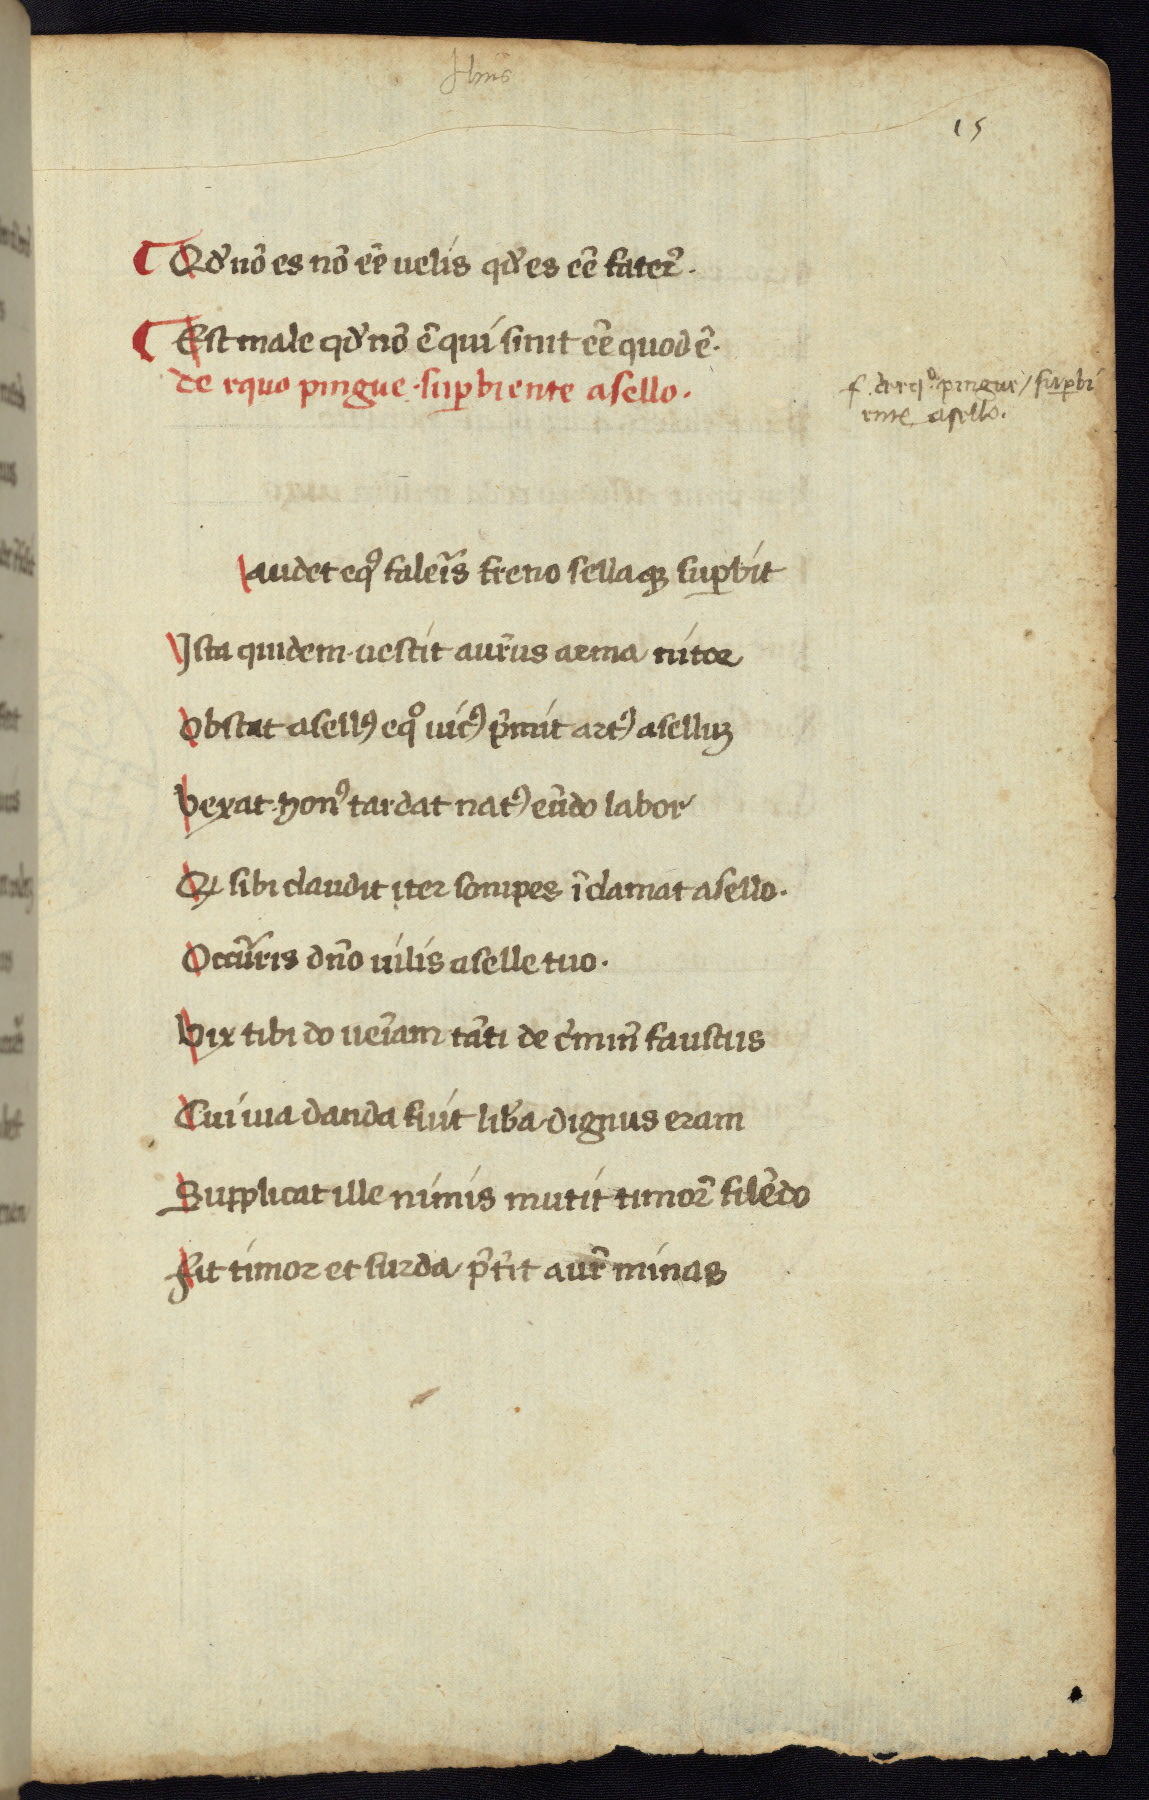 Jhus
15
Qđ nō es nō eē velis qđ es eē fater̄.
Est male qđ nō ē qui sinit eē quod ē.
de equo pingue suꝑbiente asello.
f. de eqo pingue / suꝑbi
ente asello.
audet eqꝰ faleīs freno sellaqꝫ suꝑbit
Ista quidem vestit aur̄us arma nitor
Obstat asellꝰ eqo vicꝰ p̄mit artꝰ aselluꝫ
Vexat honꝰ tardat natꝰ eūdo labor
Qꝫ sibi claudit iter sonipes īclamat asello.
Occūris dn̄o vilis aselle tuo.
Vix tibi do veīam tāti de c̄min̄ faustus
Cui via danda fuit lib̄a dignus eram
Supplicat ille nimis mutit timor̄ silēdo
Fit timor et surda p̄t̄it aur̄ minas